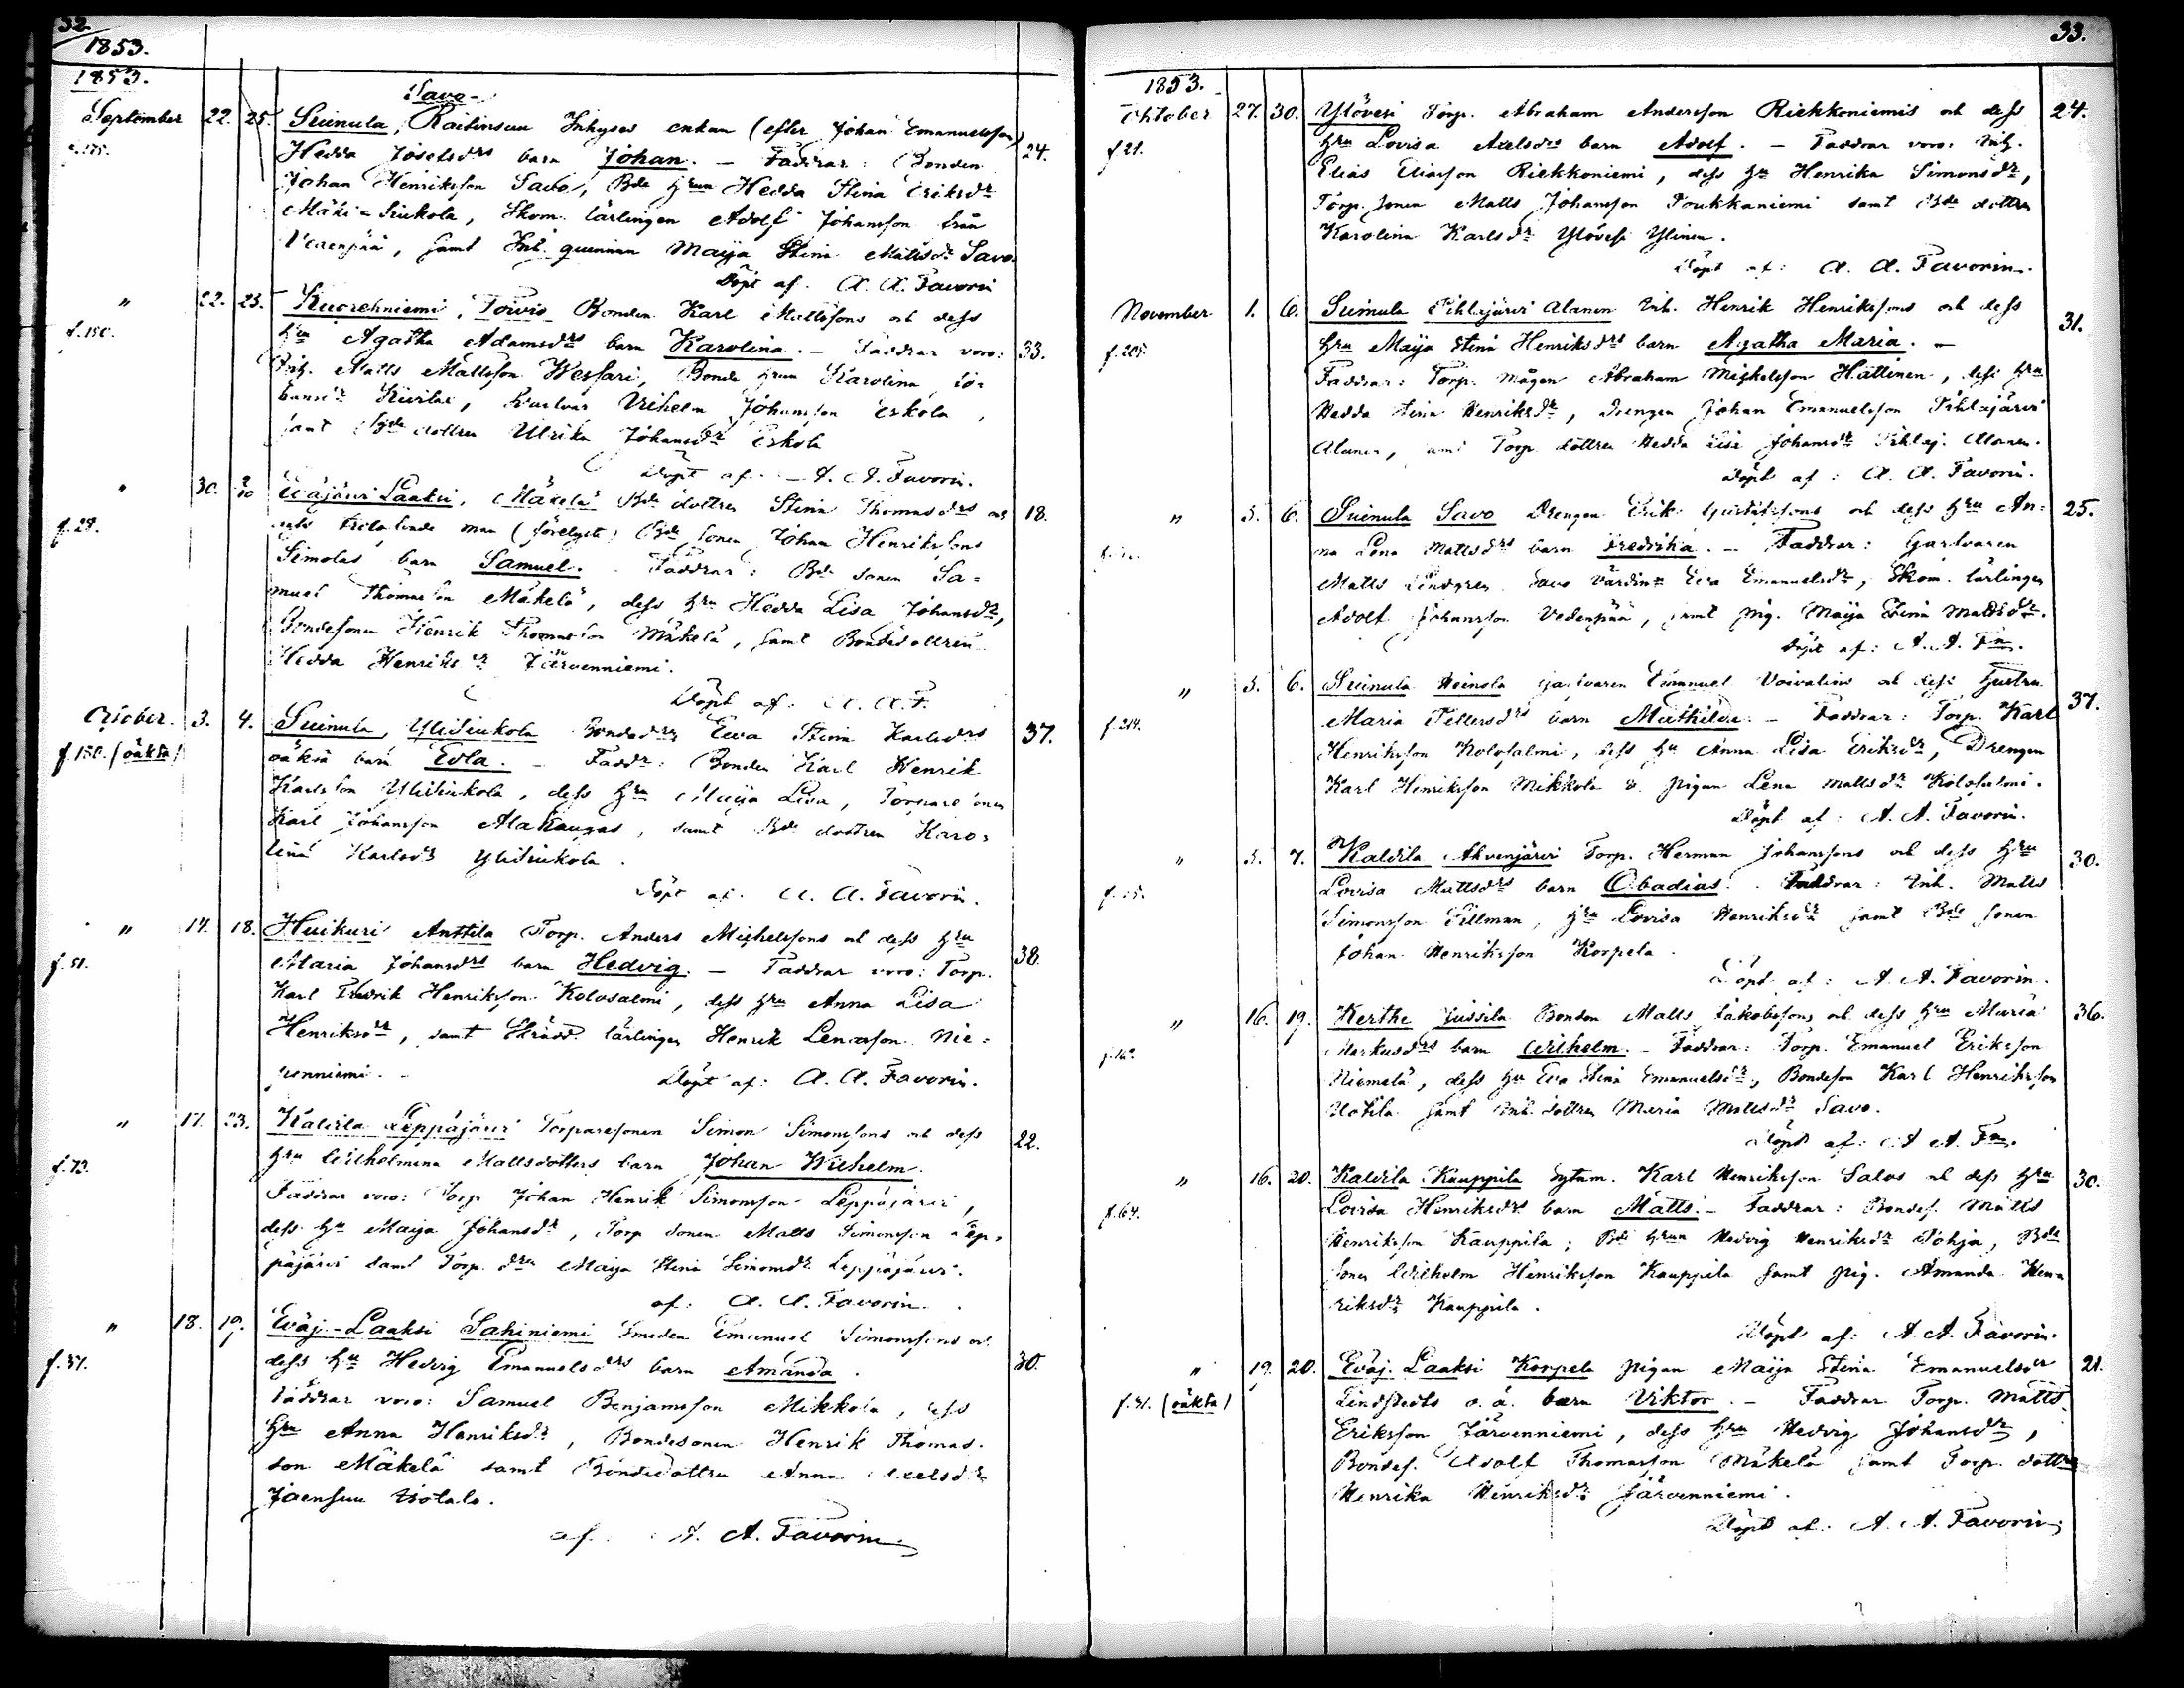 32.
1853.
1853.
Savo-
September 22. 25. Suinula, Raitinsuu Inhyses enkan (efter Johan Emanuelsson)
Hedda Josefsdrs barn Johan. – Faddrar: Bonden 24.
Johan Henriksson Savo, Bde hrun Hedda Stina Eriksdr
Mäki-Siukola, Skom. lärlingen Adolf Johansson från
Vedenpää, samt Inh. quinnan Maija Stina Mattsdr Savo.
Döpt af. A. A. Favorin
" 22. 23. Kuorehniemi, Toivio Bonden Karl Mattssons och dess
f. 150.
hru Agatha Adamsdrs barn Karolina. – Faddrar voro: 33.
Matts Mattsson Wessari, Bonde hrun Karolina Jo-
hansdr, Gustvar Vilhelm Johansson Eskola,
samt Bde dottren Ulrika Johansdr Eskola
Döpt af. – A. A. Favorin.
" 30. 2/10 Eväjärvi Laaksi, Mäkelä Bde dottren Stina Thomasdrs och 18.
f. 29.
man (förelgste) Bde Sonen Johan Henrikssons
Simolas barn Samuel. – Faddrar: Bde sonen Sa-
muel Thomasson Mäkelä, dess hru Hedda Lisa Johansdr,
Bondesonen Henrik Thomasson Mäkelä, samt Bondedottren
Hedda Henriksdr Järvenniemi.
Döpt af: A. A. F.
October. 3. 4. Suinula, YliSiukola Bondedrs Ewa Stina Karlsdrs 37.
f. 150. (oäkta)
oäkta barn Edla. – Faddr: Bonden Karl Henrik
Karlsson YliSiukola, dess hru Maija Lisa, Torparesonen
Karl Johansson Alakaugas, samt Bde dottren Karo-
lina Karlsdr YliSiukola.
Döpt af. A. A. Favorin.
" 14. 18. Huikuri Anttila Torp. Anders Michelssons och dess hru
f. 51.
Maria Johansdrs barn Hedvig. – Faddrar voro: Torp. 38.
Karl Fredrik Henriksson Kolosalmi, dess hru Anna Lisa
Henriksdr, samt Skrädd. lärlingen Henrik Lenasson Nie-
penniemi. – Döpt af: A. A. Favorin.
" 17. 23. Kaldila Leppäjärvi Torparesonen Simon Simonssons och dess 22.
f. 73.
hru Wilhelmina Mattsdotters barn Johan Wilhelm.
Faddrar voro: Torp Johan Henrik Simonsson Leppäjärvi,
dess hru Maija Johansdr, Torp sonen Matts Simonsson Lep-
päjärvi samt Torp. drn Maija Stina Simonsdr Leppäjärvi.
af: A. A. Favorin.
" 18. 19. Eväj.-Laaksi Sahiniemi Smeden Emanuel Simonssons och
f. 37.
dess hru Hedvig Emanuelsdrs barn Amanda. 30.
Faddrar voro: Samuel Benjamsson Mikkola, dess
hru Anna Henriksdr, Bondesonen Henrik Thomas-
son Mäkelä samt Bondedottren Anna Axelsdr
Joensuu Uotala.
af. A. A. Favorin
33.
1853.
Oktober 27. 30. Ylövesi Torp. Abraham Andersson Riekkoniemis och dess 24.
f. 21.
hru Lovisa Axelsdrs barn Adolf. – Faddrar voro: Inh.
Elias Eliasson Riekkoniemi, dess hru Henrika Simonsdr,
Torp. sonen Matts Johansson Poukkaniemi samt Bde dottren
Karolina Karlsdr Ylövesi Ylinen.
Döpt af: A. A. Favorin.
November 1. 6. Suinula Pihlajärvi Alanen Inh. Henrik Henrikssons och dess 31.
f. 205.
hru Maija Stina Henriksdrs barn Agatha Maria. –
Faddrar: Torp. mågen Abraham Michelsson Hattinen, dess hru
Hedda Stina Henriksdr, Drengen Johan Emanuelsson Pihlajärvi
Alanen, samt Torp. dottren Hedda Lisa Johansdr Pihlaj. Alanen.
Döpt af: A. A. Favorin.
" 5. 6. Suinula Savo Drengen Erik och dess hru An- 25.
na Lena Mattsdrs barn Fredrika. – Faddrar: Garfvaren
Matts Lindgren Savo Värdinn Eva Emanuelsdr, Skom. lärlingen
Adolf Johansson Vedenpää, samt pig. Maija Stina Mattsdr.
Döpt af: A. A. Fn.
" 5. 6. Suinula Heinola Garfvaren Emanuel Voivalins och dess hustru 37.
f. 214.
Maria Fellersdrs barn Mathilda. – Faddrar: Torp. Karl
Henriksson Kolosalmi, dess hru Anna Lisa Eriksdr, Drengen
Karl Henriksson Mikkola o. pigan Lena Mattsdr Kolosalmi.
Döpt af: A. A. Favorin.
" 5. 7. Kaldila Ahvenjärvi Torp. Herman Johanssons och dess hru 30.
Lovisa Mattsdrs barn Obadias. Faddrar: Inh. Matts
Simonsson Tillman, hru Lovisa Henriksdr samt Bde sonen
Johan Henriksson Korpela.
Döpt af: A. A. Favorin.
" 16. 19. Kerthe Jussila Bonden Matts Jakobssons och dess hru Maria 36.
Markusdrs barn Wilhelm. – Faddrar: Torp. Emanuel Eriksson
Niemelä, dess hru Eva Stina Emanuelsdr, Bondeson Karl Henriksson
Uotila samt Inh. dottren Maria Mattsdr Savo.
Döpt af: A. A. Fn.
" 16. 20. Kaldila Kauppila Sytnm. Karl Henriksson Salos och dess hru 30.
f. 64.
Lovisa Henriksdrs barn Matts. – Faddrar: Bondes. Matts
Henriksson Kauppila; Bde hrun Hedvig Henriksdr Pohja, Bde
sonen Wilhelm Henriksson Kauppila samt pig. Amanda Hen-
riksdr Kauppila.
Döpt af: A. A. Favorin.
" 19. 20. Eväj. Laaksi Korpela pigan Maija Stina Emanuelsdr 21.
f. 41. (oäkta)
Lindstedts o. ä. barn Viktor. – Faddrar Torp. Matts
Eriksson Järvenniemi, dess hru Hedvig Johansdr,
Bondes. Adolf Thomasson Mäkelä samt Torp. dottren
Henrika Henriksdr Järvenniemi.
Döpt af: A. A. Favorin